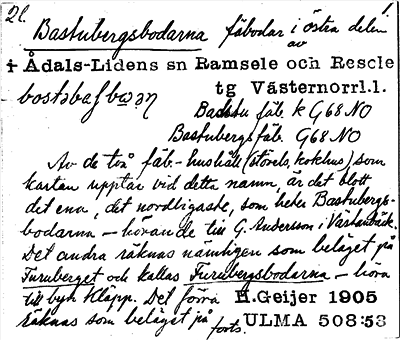 2l. 1.
Bastubergsbodarna fäbodar i östra delen
av
i Ådals-Lidens sn Ramsele och Resele
tg Västernorrl.l.
Badstu fäb. k G68 NO
Bastubergs fäb. G68 NO
Av de två fäb.-hushåll (störelo, kokhus), som
kartan upptar vid detta namn, är det blott
det ena, det nordligaste, som heter Bastubergs-
bodarna – hörande till G. Andersson i Västanbäck.
Det andra räknas nämligen som beläget på
Furuberget och kallas Furubergsbodarna – höra
till byn Kläpp. Det förra H.Geijer 1905
räknas som beläget på forts. ULMA 508:53